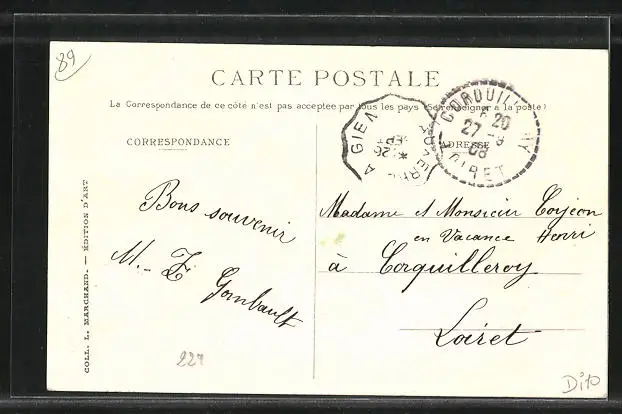 89
CARTE POSTALE
La Correspondance de ce côté n'est pas acceptée par tous les pays (Se renseigner à la poste)
CORRESPONDANCE
ADRESSE
A GIEN
AUXERRE
26
CORQUILLEROY
20
27 -8
08
LOIRET
Bons souvenir
M.- E. Gombault
Madame et Monsieur Cojeon
en Vacance Henri
à Corquilleroy
Loiret
COLL. L. MARCHAND. — ÉDITION D'ART
227
Di70